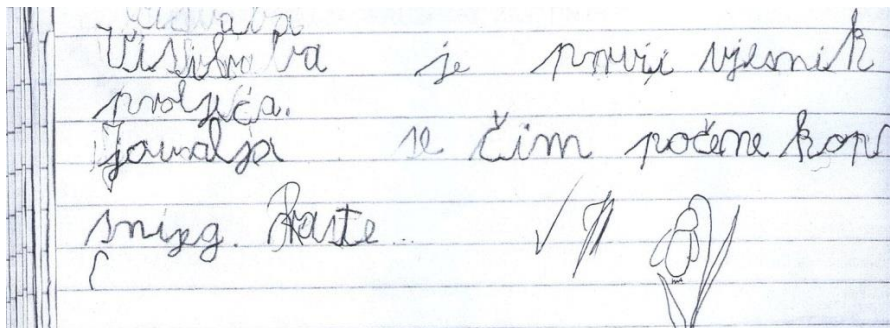 Visibaba je prvi vjesnik
proljeća.
Javalja se čim počene kopn
snijeg. Raste...